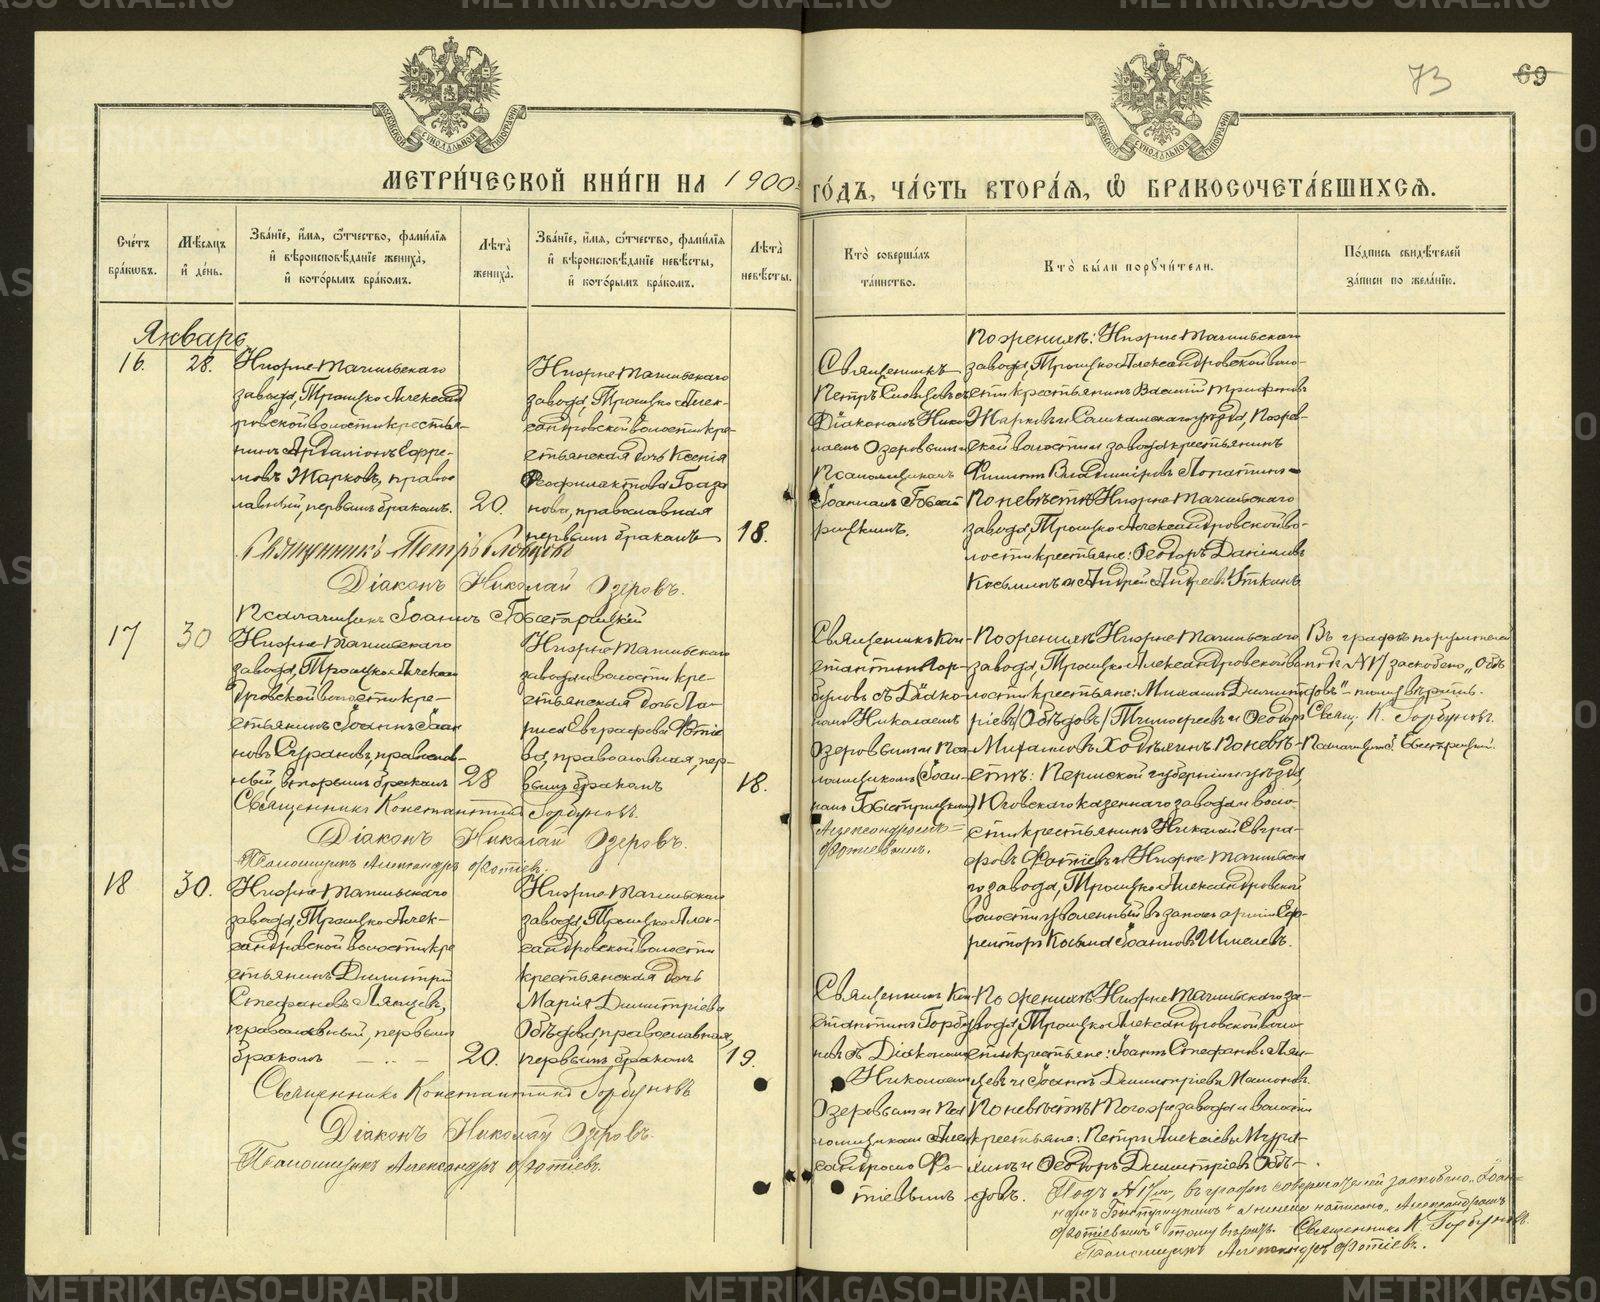 73
69
МЕТРИ́ЧЕСКОЙ КНИ́ГИ НА 1900й ГО́ДЪ, ЧА́СТЬ ВТОРА́Я, Ѡ БРАКОСОЧЕТА́ВШИХСЯ.
Сче́тъ бра́кѡвъ.
Мѣ́сяцъ и де́нь.
Зва́нїе, и́мя, ѻ́тчество, фами́лїя и вѣроисповѣ́данїе жениха̀, и кото́рымъ бра́комъ.
Лѣ́та жениха̀.
Зва́нїе, и́мя, ѻ́тчество, фами́лїя и вѣроисповѣ́данїе невѣ́сты, и кото́рымъ бра́комъ.
Лѣ́та невѣ́сты.
Кто̀ соверша́лъ та́инство.
Кто̀ бы́ли поручи́тели.
По́дпись свидѣ́телей за́писи по жела́нїю.
Январь
16. 28.
Нижне Тагильскаго
завода, Троицко Александ
ровской волости кресть-
янинъ Ардаліонъ Ефре-
мовъ Жарковъ, право
лавный, первымъ бракомъ. 20.
Нижне Тагильскаго
завода, Троицко Алек-
сандровской волости кре-
стьянская дочь Ксенія
Феофилактова
нова, православная
первымъ бракомъ 18.
Священникъ
Петръ Словцовъ съ
Діакономъ Нико
лаемъ Озеровымъ и
Псаломщикомъ
Іоанномъ Быст
рицкимъ.
По женихѣ: Нижне Тагильскаго
завода, Троицко Александровской воло-
сти крестьянинъ Василій Трифоновъ
Жарковъ и Соликамскаго уѣзда,
ской волости и завода крестьянинъ
Филиппъ Владиміровъ Лопатинъ=
По невѣстѣ Нижне Тагильскаго
завода, Троицко Александровской во-
лости крестьяне: Ѳеодоръ Даніиловъ
Косьминъ и Андрей Андреевъ Уткинъ
Священникъ Петръ Словцовъ
Діаконъ Николай Озеровъ.
Псаломщикъ Іоаннъ Быстрицкій
17 30
Нижне Тагильскаго
завода, Троицко Алексан
дровской волости кре-
стьянинъ Іоаннъ Іоан
новъ православ-
ный, вторымъ бракомъ 28
Нижне Тагильскаго
завода и волости кре-
стьянская дочь Ла-
риса Евграфова Фотіе
ва, православная, пер-
вымъ бракомъ 18.
Священникъ Кон-
стантинъ Гор-
буновъ съ Діако-
номъ Николаемъ
Озеровымъ и Пса-
ломщикомъ (Іоан-
номъ Быстрицкимъ)
Александромъ=
Фотіевымъ.
По женихѣ Нижне Тагильскаго
завода, Троицко Александровской во
лости крестьяне: Михаилъ Димит
ріевъ (Объѣдовъ) Тимофеевъ и Ѳеодоръ
Михаиловъ Ходъкинъ По невѣ-
стѣ: Пермской губерніи и уѣзда,
Юговскаго казеннаго завода и воло-
сти крестьянинъ Николай Евгра-
фовъ Фотіевъ и Нижне Тагильска
го завода, Троицко Александровской
волости уволенный въ запасъ арміи Еф-
рейторъ Косьма Іоанновъ Шмелевъ.
Въ графѣ поручителей
подъ №17 заскоблено „Объѣ
довъ"- тому вѣрить.
Свящ. К. Горбуновъ.
Псаломщикъ І. Быстрицкій.
Священникъ Константинъ Горбуновъ.
Діаконъ Николай Озеровъ.
Псаломщикъ Александръ Фотіевъ.
18 30.
Нижне Тагильскаго
завода, Троицко Алек-
сандровской волости кре
стьянинъ Димитрій
Стефановъ Ляпцевъ,
православный, первымъ
бракомъ 20.
Нижне Тагильскаго
завода, Троицко Алек-
сандровской волости
крестьянская дочь
Марія Димитріева
Объѣдова, православная,
первымъ бракомъ 19.
Священникъ Кон
стантинъ Горбу
новъ съ Діакономъ
Николаемъ
Озеровымъ и Пса
ломщикомъ Алек
сандромъ Фо-
тіевымъ
По женихѣ Нижне Тагильскаго за-
вода, Троицко Александровской воло
сти крестьяне: Іоаннъ Стефановъ Ляп-
цевъ и Іоаннъ Димитріевъ Мамоновъ.
По невѣстѣ Того же завода и волости
крестьяне: Петръ Алексіевъ
и Ѳеодоръ Димитріевъ Объѣ-
довъ.
Священникъ Константинъ Горбуновъ
Діаконъ Николай Озеровъ.
Псаломщикъ Александръ Фотіевъ.
Подъ №17м, въ графѣ совершателей заскоблено „Іоан-
номъ Быстрицкимъ" а ниже написано „Александромъ
Фотіевымъ" тому вѣрить. Священникъ К. Горбуновъ.
Псаломщикъ Александръ Фотіевъ.
METRIKI.GASO-URAL.RU